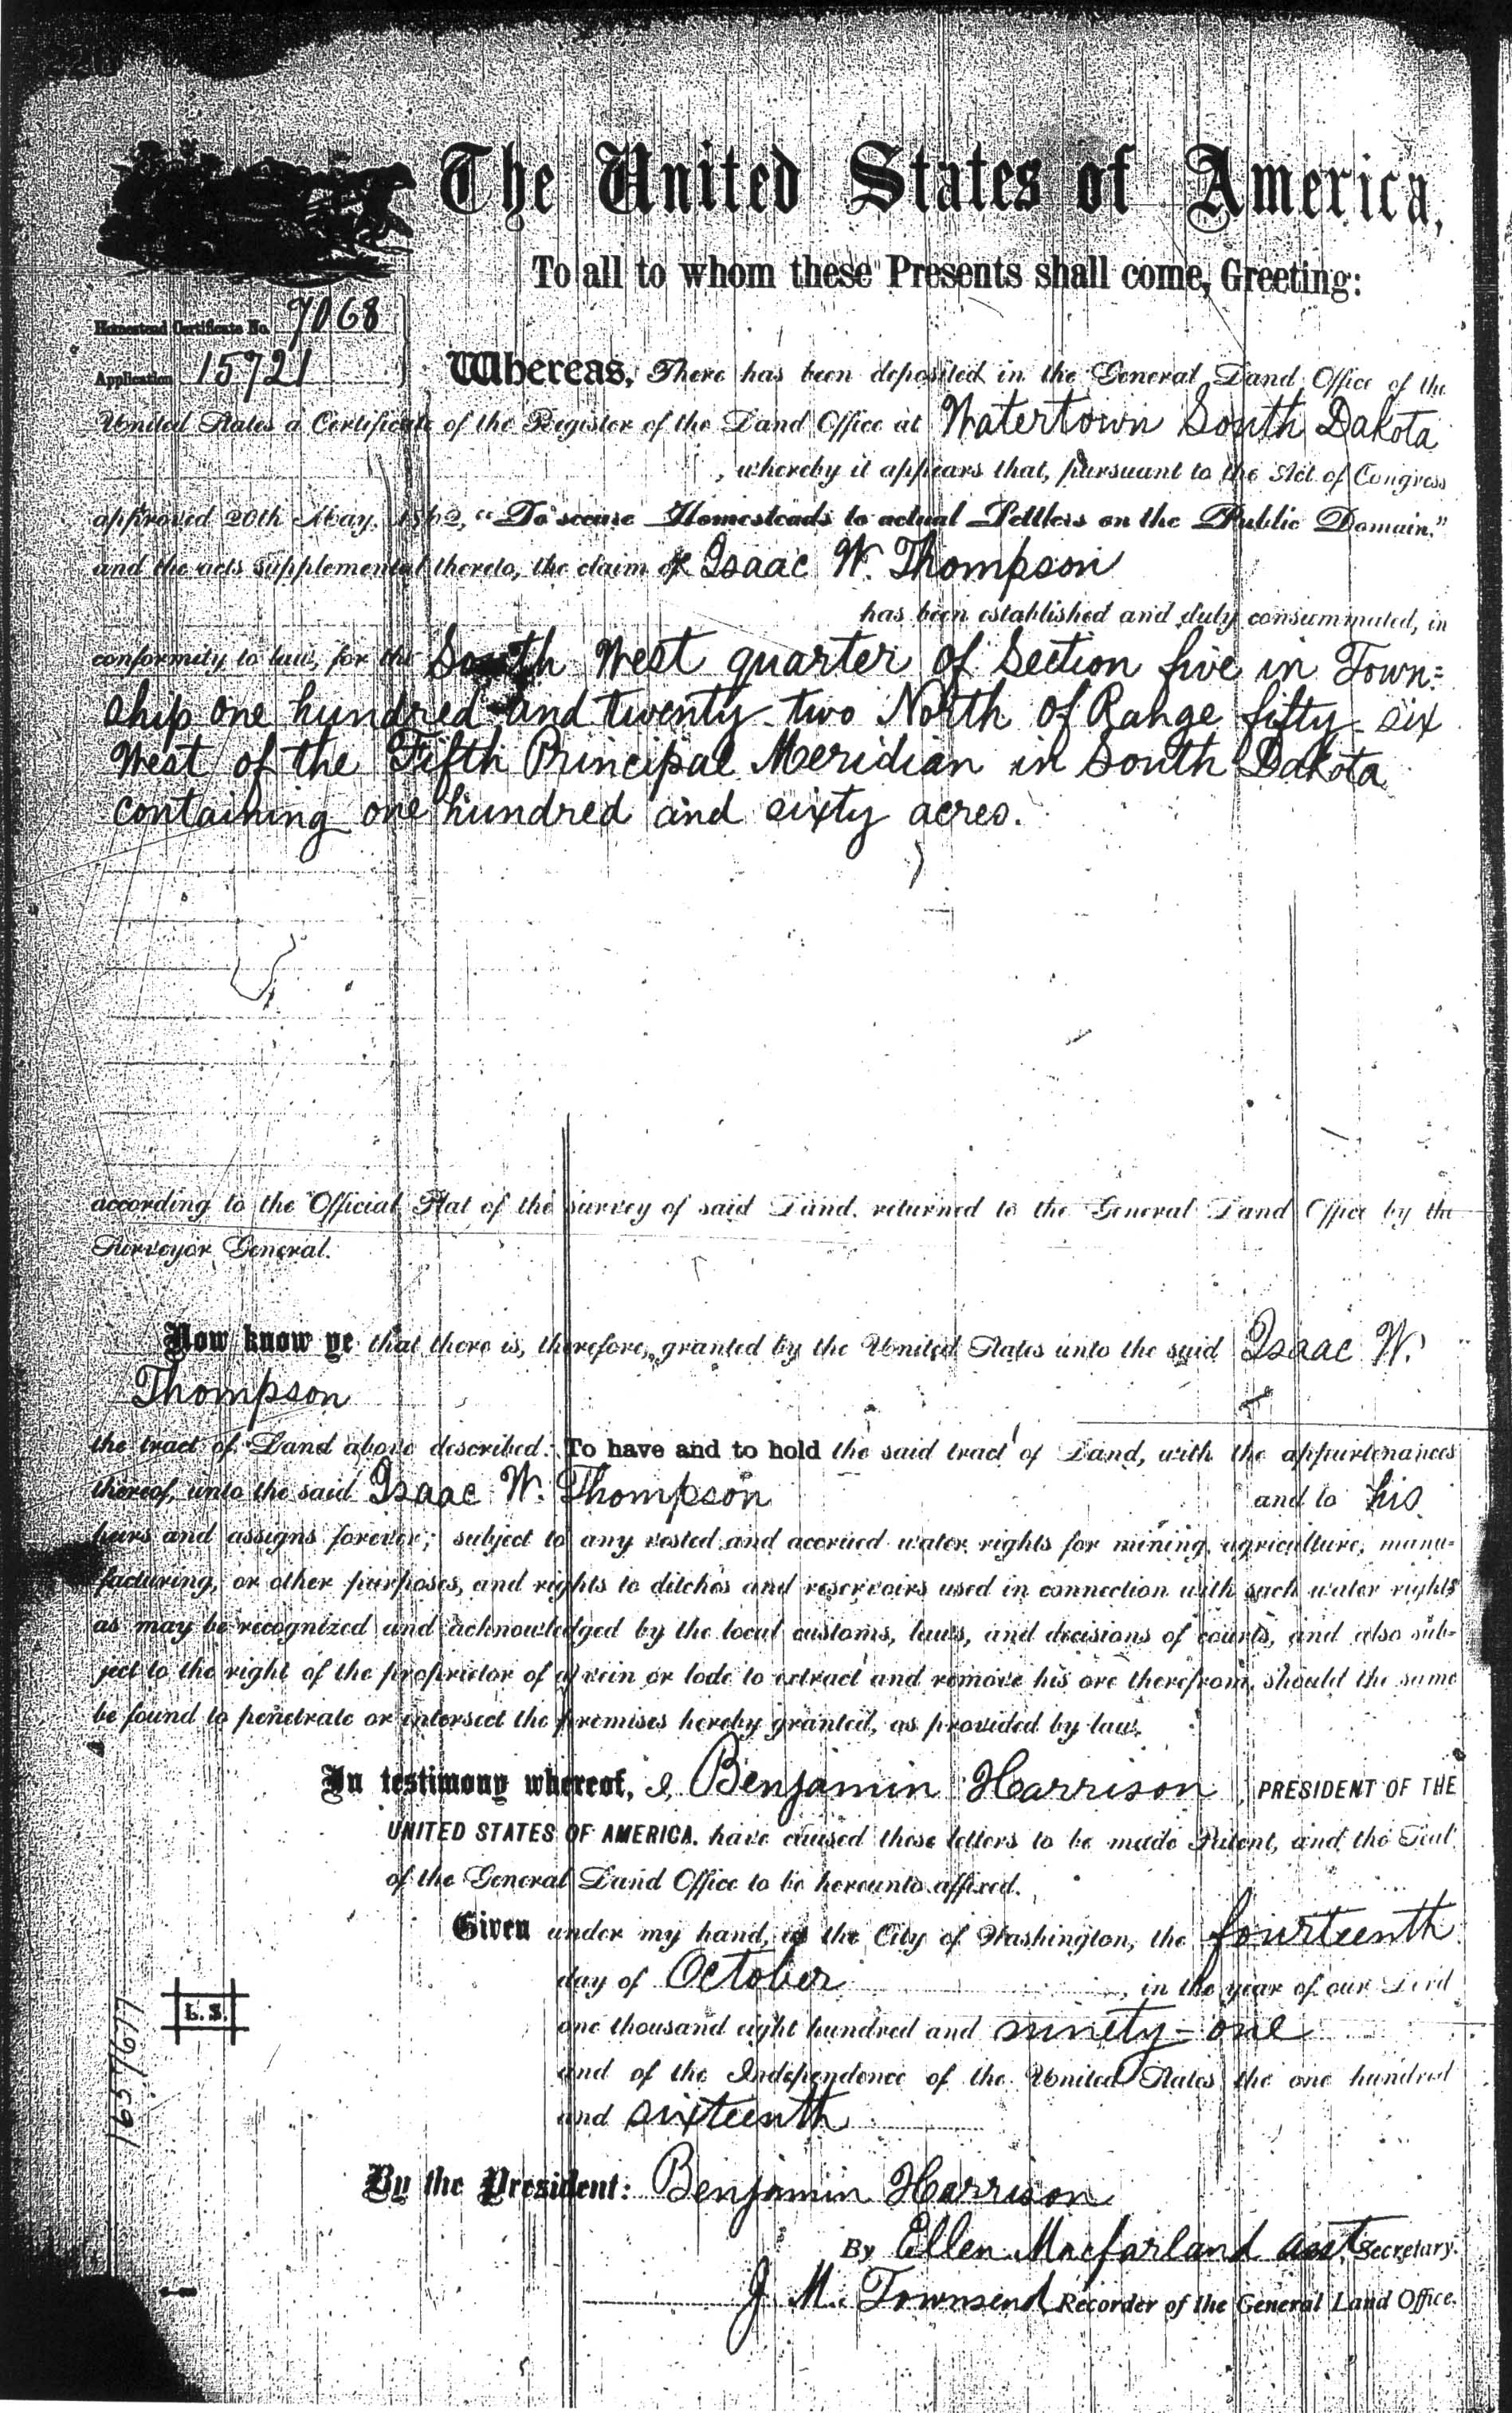 The United States of America,
To all to whom these Presents shall come, Greeting:
Homestead Certificate No. 7068
Application 15721
Whereas, There has been deposited in the General Land Office of the
United States a Certificate of the Register of the Land Office at Watertown South Dakota
, whereby it appears that, pursuant to the Act of Congress
approved 20th May, 1862, "To secure Homesteads to actual Settlers on the Public Domain,"
and the acts supplemental thereto, the claim of Isaac W. Thompson
has been established and duly consummated, in
conformity to law, for the South West quarter of Section five in Town=
ship one hundred and twenty-two North of Range fifty-six
West of the Fifth Principal Meridian in South Dakota
containing one hundred and sixty acres.
according to the Official Plat of the survey of said Land, returned to the General Land Office by the
Surveyor General.
Now know ye that there is, therefore, granted by the United States unto the said Isaac W.
Thompson
the tract of Land above described: To have and to hold the said tract of Land, with the appurtenances
thereof, unto the said Isaac W. Thompson and to his
heirs and assigns forever; subject to any vested and accrued water rights for mining, agriculture, manu-
facturing, or other purposes, and rights to ditches and reservoirs used in connection with such water rights
as may be recognized and acknowledged by the local customs, laws, and decisions of courts, and also sub-
ject to the right of the proprietor of a vein or lode to extract and remove his ore therefrom, should the same
be found to penetrate or intersect the premises hereby granted, as provided by law.
In testimony whereof, I, Benjamin Harrison, PRESIDENT OF THE
UNITED STATES OF AMERICA, have caused these letters to be made Patent, and the Seal
of the General Land Office to be hereunto affixed.
Given under my hand, at the City of Washington, the fourteenth
day of October, in the year of our Lord
one thousand eight hundred and ninety-one
and of the Independence of the United States the one hundred
and sixteenth
L.S.
By the President: Benjamin Harrison
By Ellen Macfarland asst. Secretary.
J. M. Townsend, Recorder of the General Land Office.